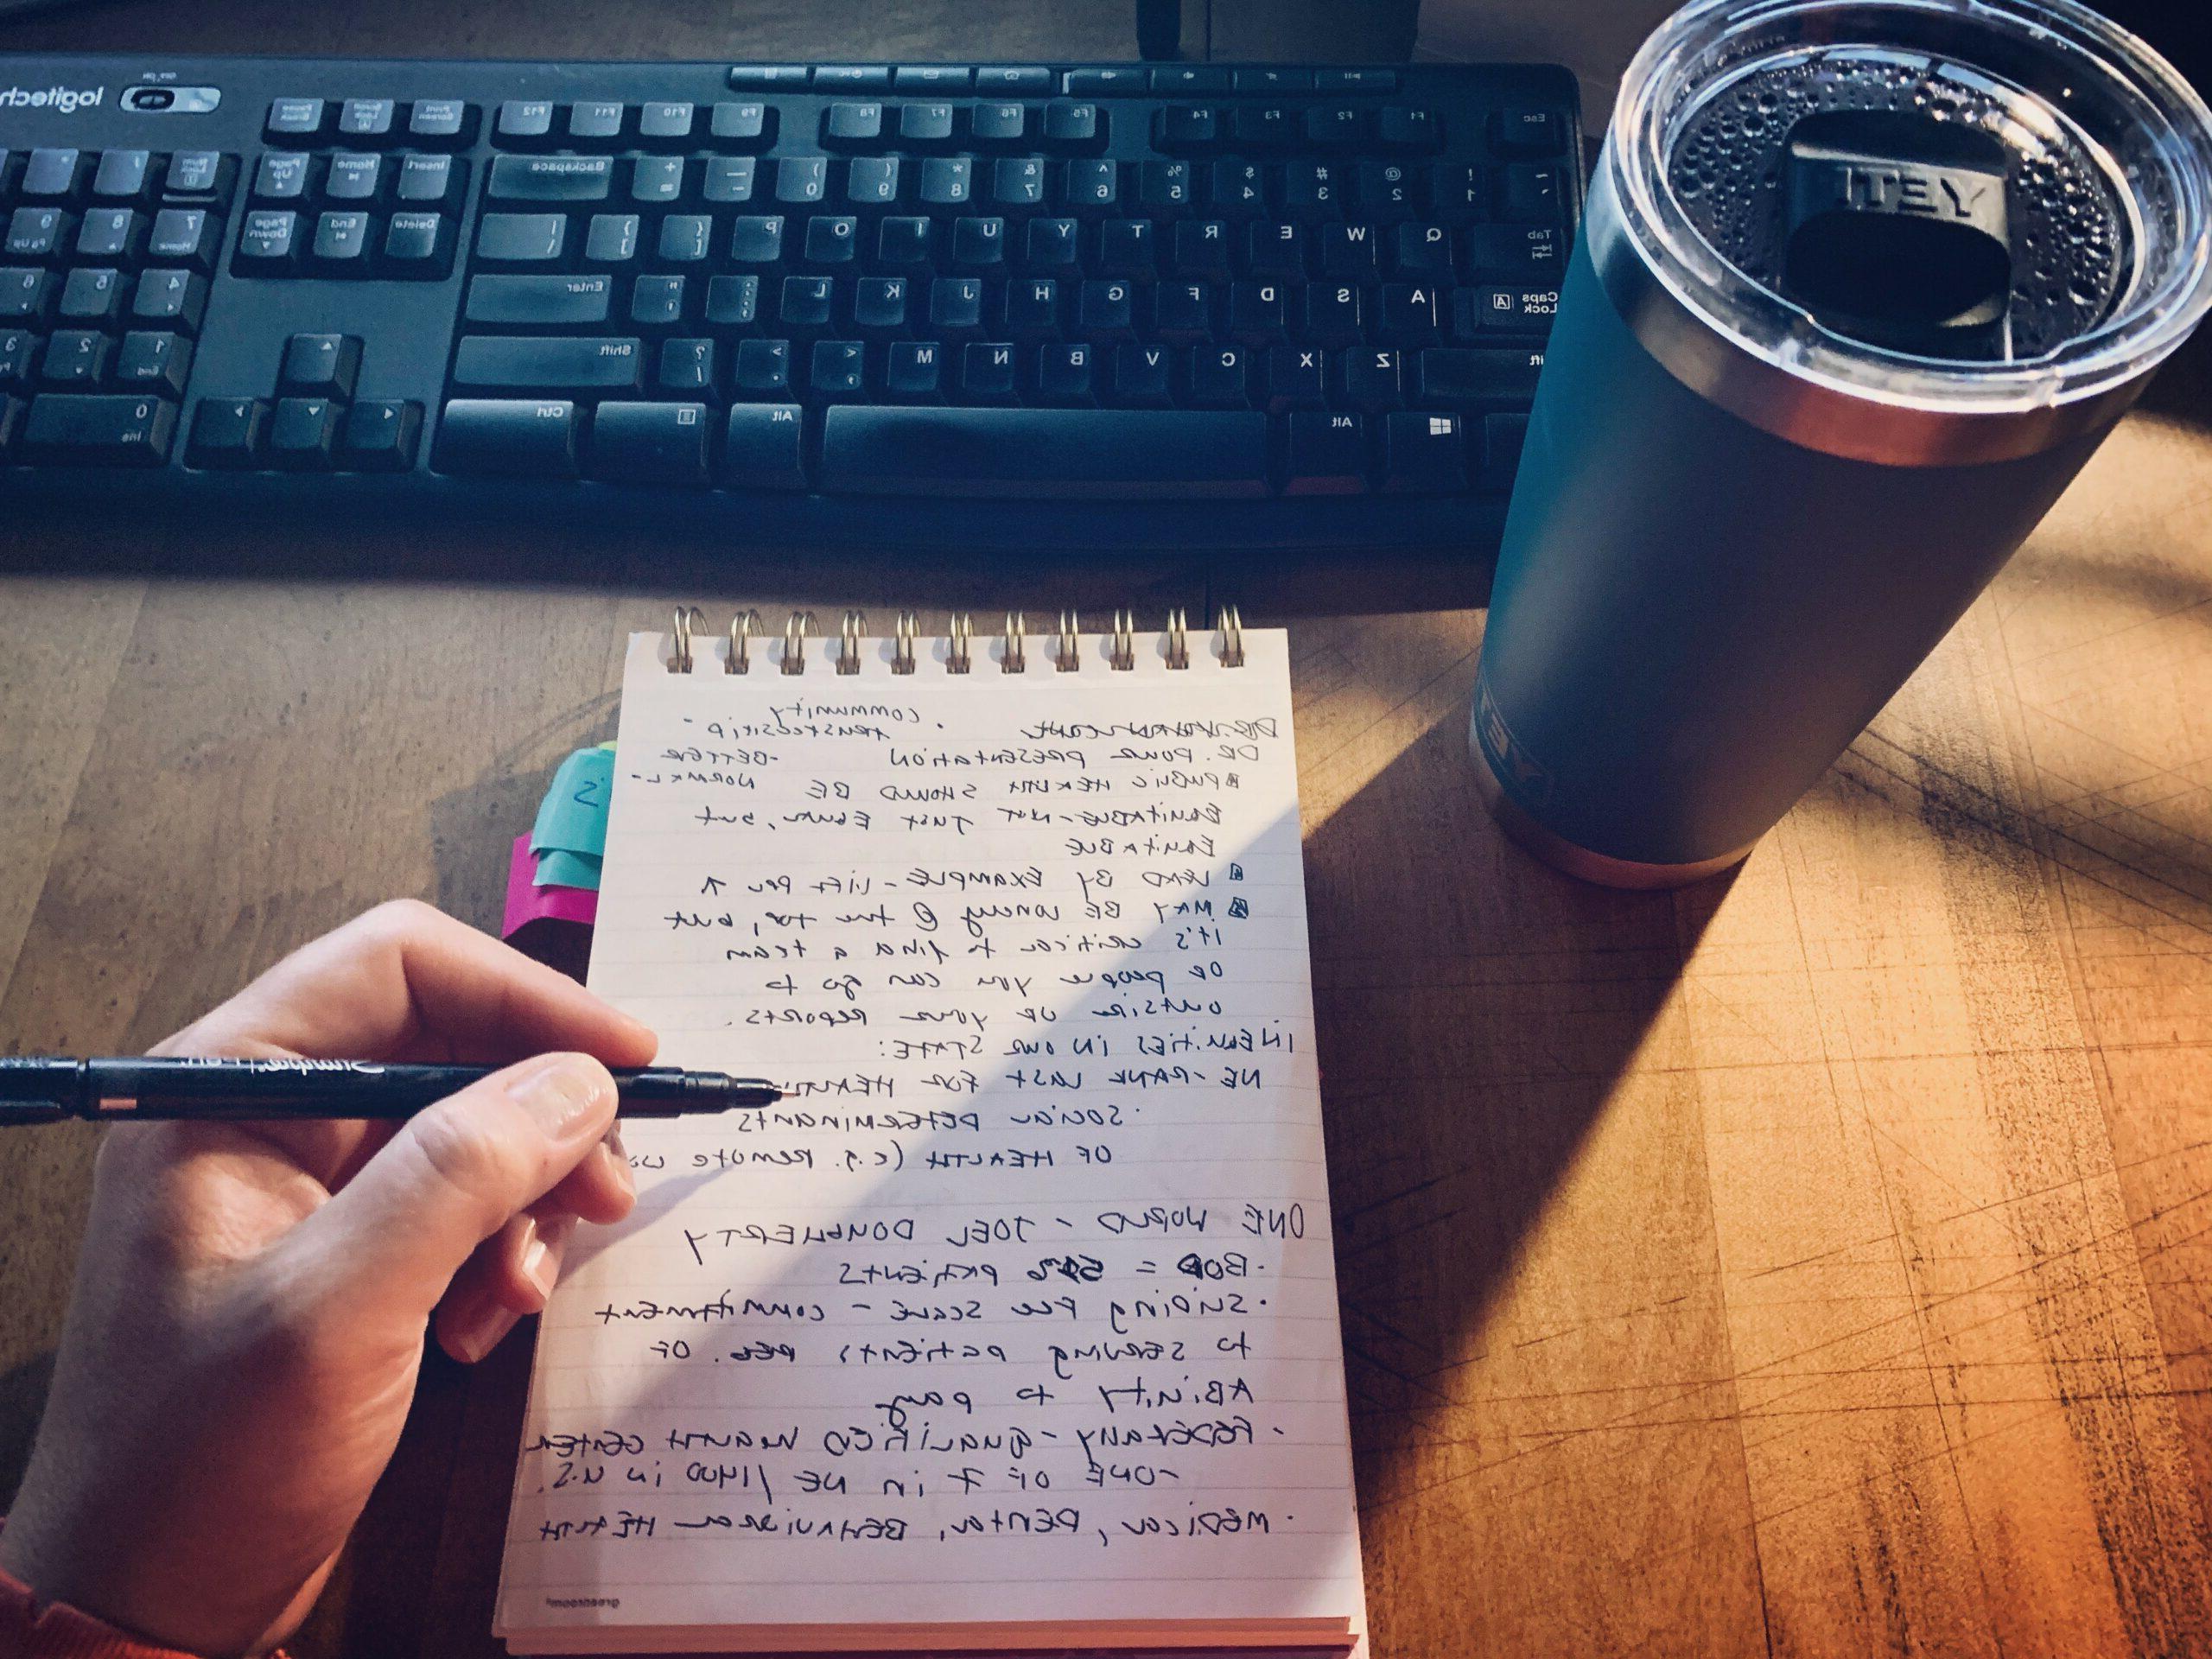 logitech
off on
Esc F1 F2 F3 F4 F5 F6 F7 F8 F9 F10 F11 F12 Print Screen Scroll Lock Pause Break
~ ` ! 1 @ 2 # 3 $ 4 % 5 ^ 6 & 7 * 8 ( 9 ) 0 — - + = Backspace Insert Home Page Up Num Lock / *
Tab Q W E R T Y U I O P { [ } ] | \ Delete End Page Down 7 Home 8 9 Pg Up
Caps Lock A S D F G H J K L : ; " ' Enter 4 5 6
Shift Z X C V B N M < , > . ? / Shift 1 End 2 3
Alt Alt Ctrl 0 Ins
YETI
YETI
community
trusteeship
DR. POUR PRESENTATION -BETTER
PUBLIC HEALTH SHOULD BE NORMAL-
EQUITABLE-NOT JUST EQUAL, but
EQUITABLE
LEAD BY EXAMPLE - LIFT PPL ↑
MAY BE lonely @ the top, but
it's critical to find a team
OF people you can go to
outside OF your REPORTS.
INEQUITIES IN OUR STATE:
NE-RANK LAST FOR HEALTH
·SOCIAL DETERMINANTS
OF HEALTH (e.g. REMOTE
ONE WORLD - JOEL DOUGHERTY
·BOD = 51% PATIENTS
·SLIDING FEE SCALE - COMMITMENT
to SERVING PATIENTS REG. OF
ABILITY to pay
·FEDERALLY-QUALIFIED HEALTH CENTER
-ONE OF 7 in NE /1400 in U.S.
·MEDICAL, DENTAL, BEHAVIORAL HEALTH
greenroom
Sharpie. Pen